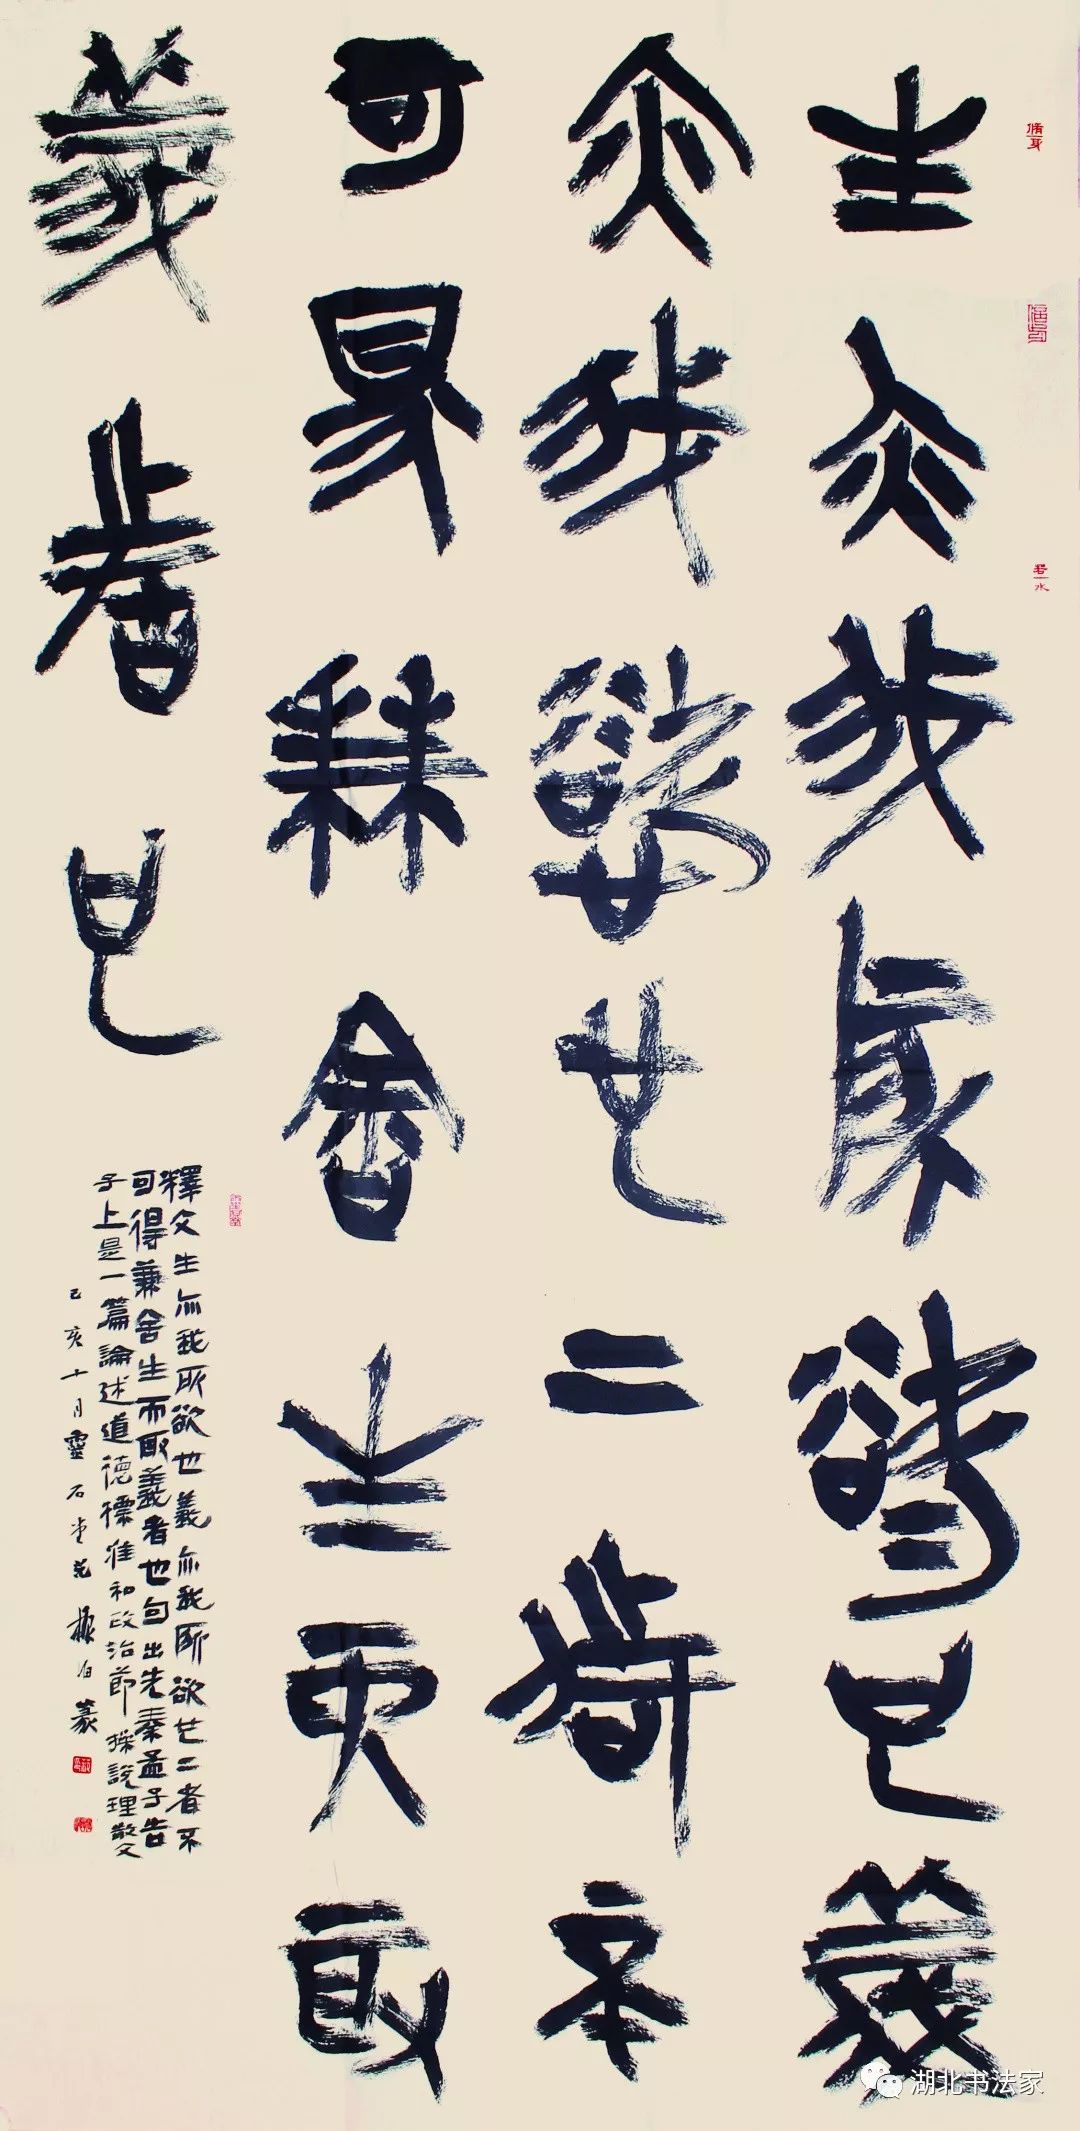 生亦我所欲也義
亦我欲也二者不
可得兼舍生而取
義者也
釋文生亦我所欲也義亦我所欲也二者不
可得兼舍生而取義者也句出先秦孟子告
子上是一篇論述道德標准和政治節操說理散文
己亥十月靈石堂范振伯篆
修身
湖北书法家